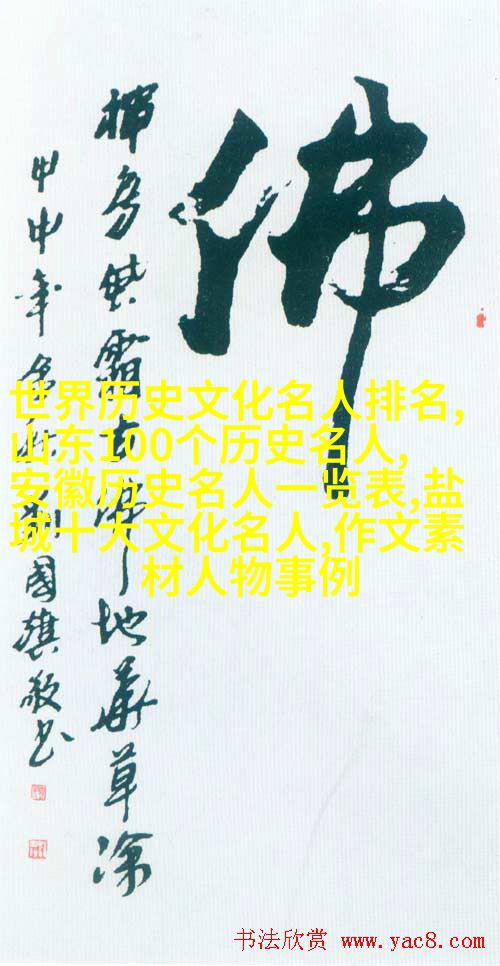 佛
霜 地 草
甲申年 秋 國旗敬书
世界历史文化名人排名,
山东100个历史名人,
安徽历史名人一览表,盐
城十大文化名人,作文素
材人物事例
书法欣赏 www.yac8.com